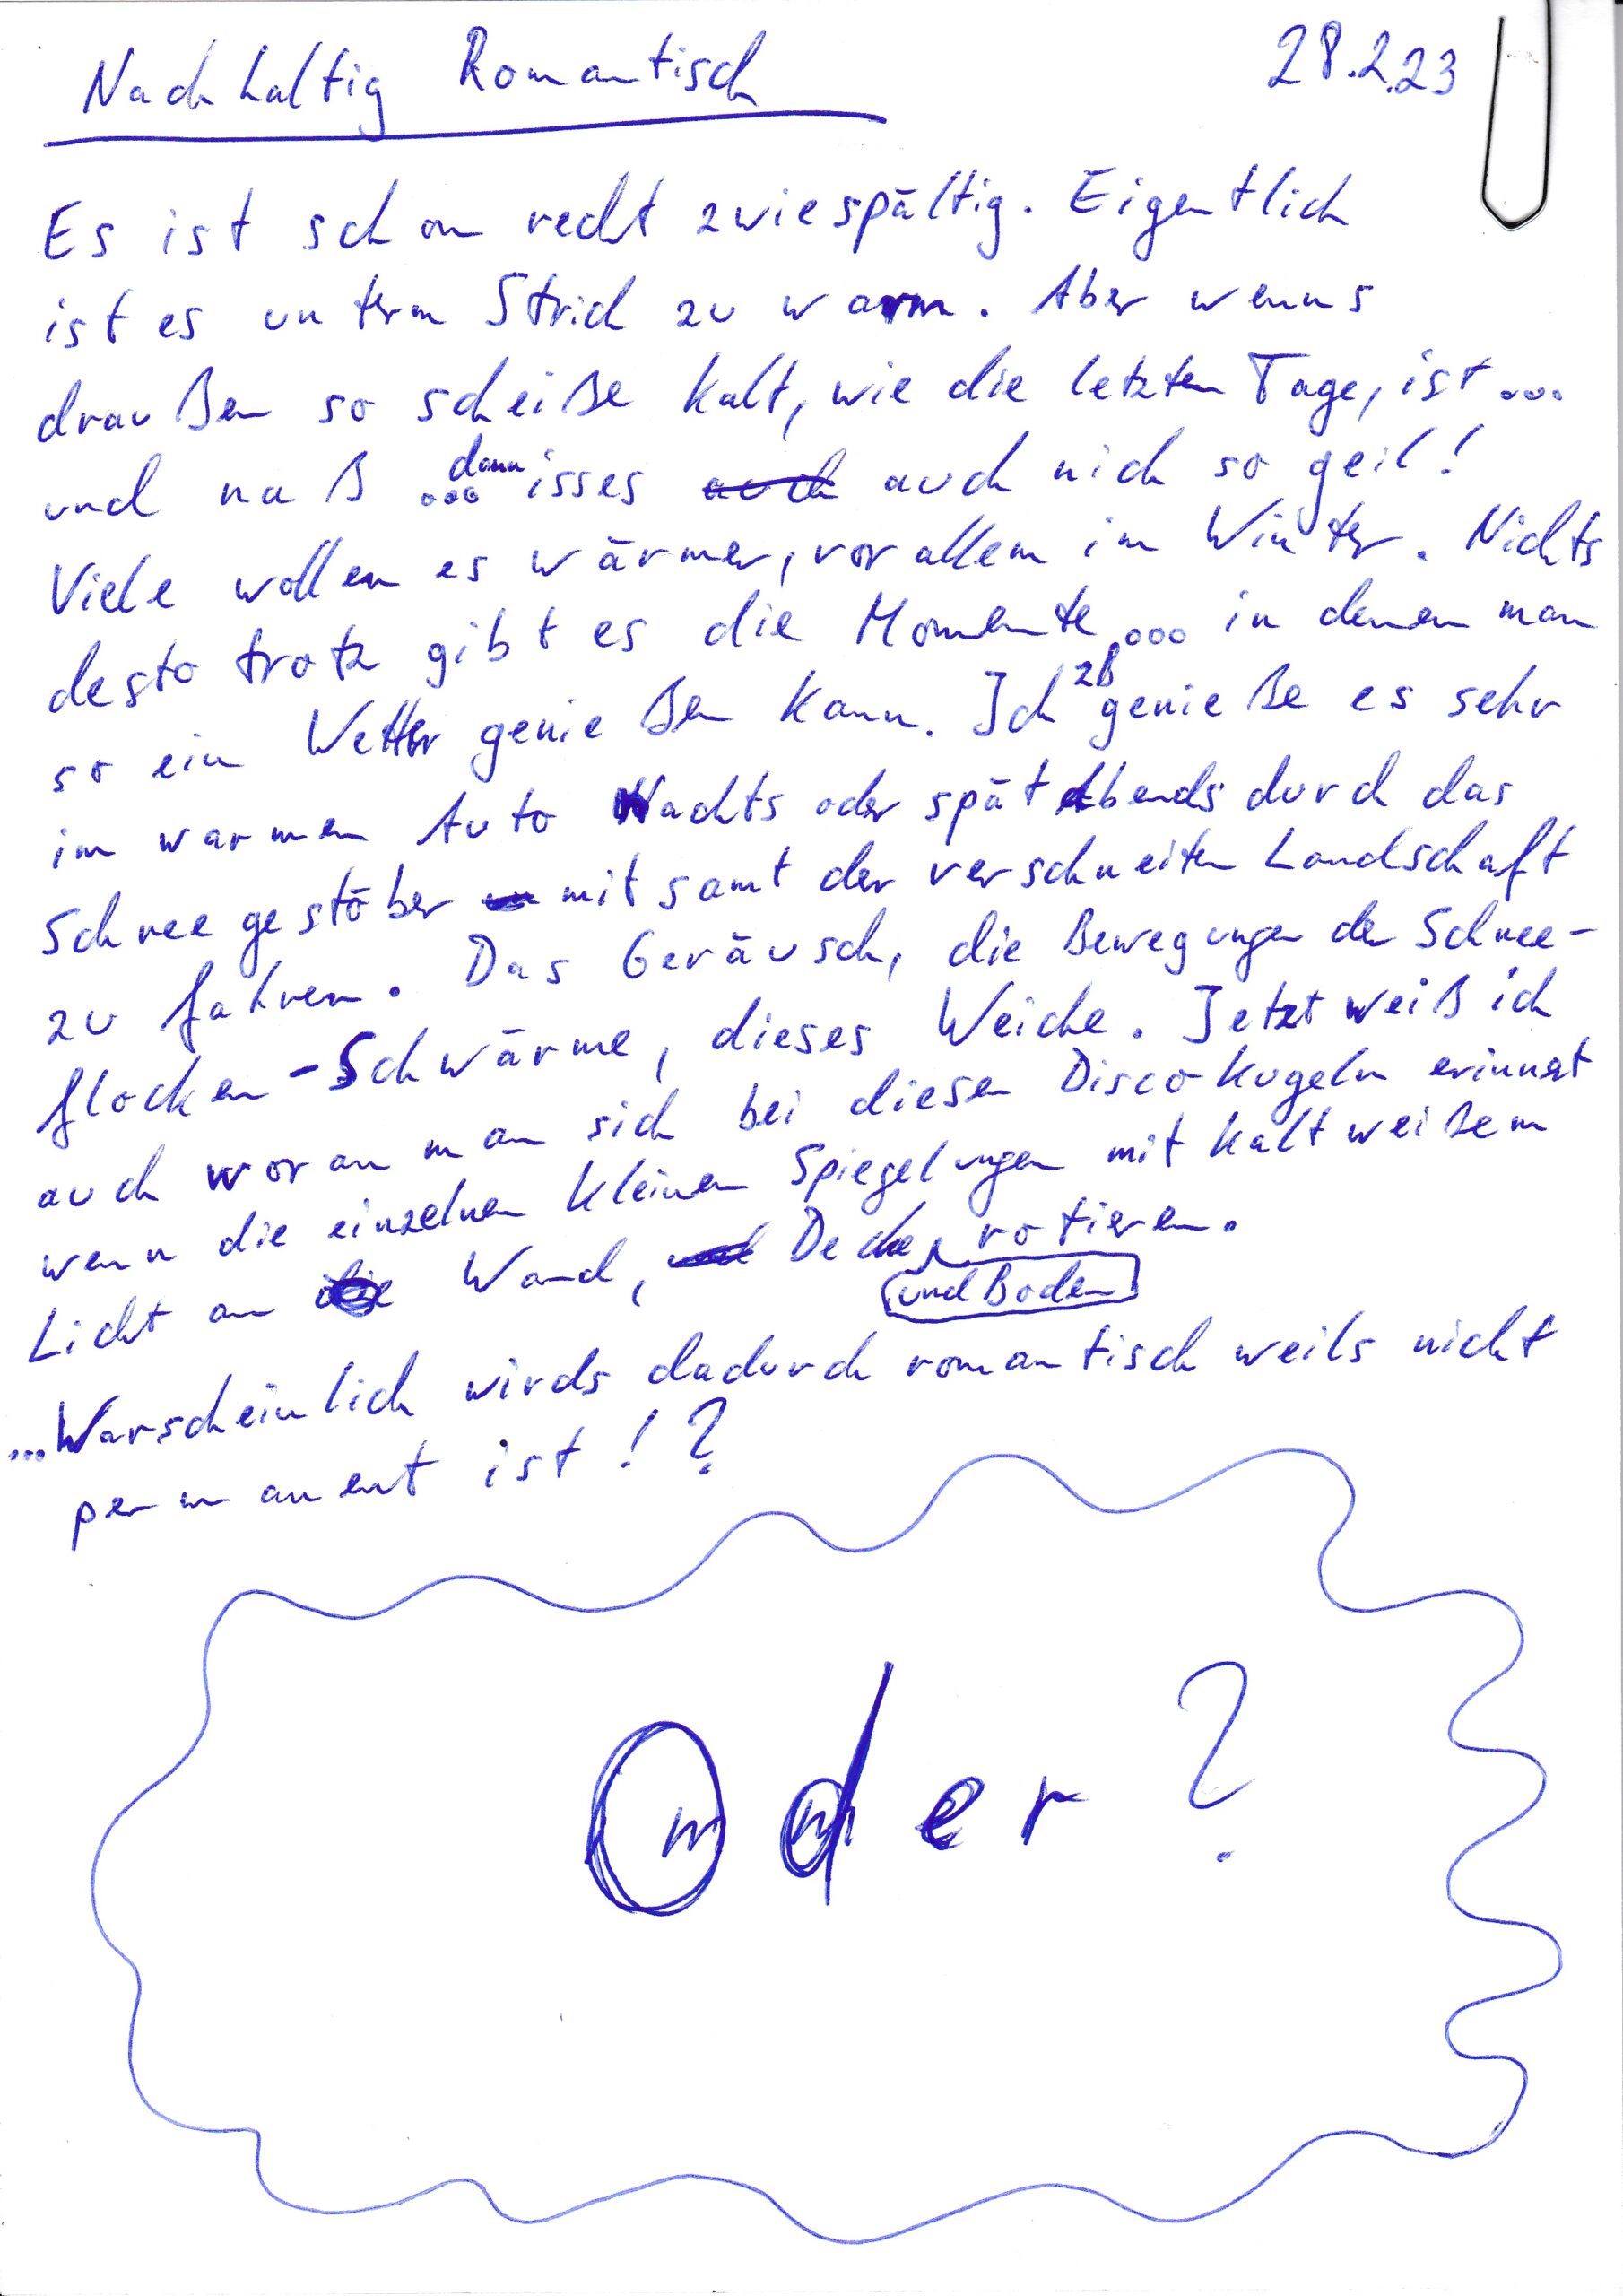 Nachhaltig Romantisch 28.2.23
Es ist schon recht zwiespältig. Eigentlich
ist es unterm Strich zu warm. Aber wenns
draußen so scheiße kalt, wie die letzten Tage, ist...
und naß ... dann isses auch auch nich so geil!
Viele wollen es wärmer, vor allem im Winter. Nichts
desto trotz gibt es die Momente... in denen man
so ein Wetter genießen kann. Ich zB genieße es sehr
im warmen Auto Nachts oder spät Abends durch das
Schneegestöber mitsamt der verschneiten Landschaft
zu fahren. Das Geräusch, die Bewegungen der Schnee-
flocken-Schwärme, dieses Weiche. Jetzt weiß ich
auch woran man sich bei diesen Discokugeln erinnert
wenn die einzelnen kleinen Spiegelungen mit kaltweißem
Licht an die Wand, und Decke und Boden rotieren.
...Warscheinlich wirds dadurch romantisch weils nicht
permanent ist!?
Oder?